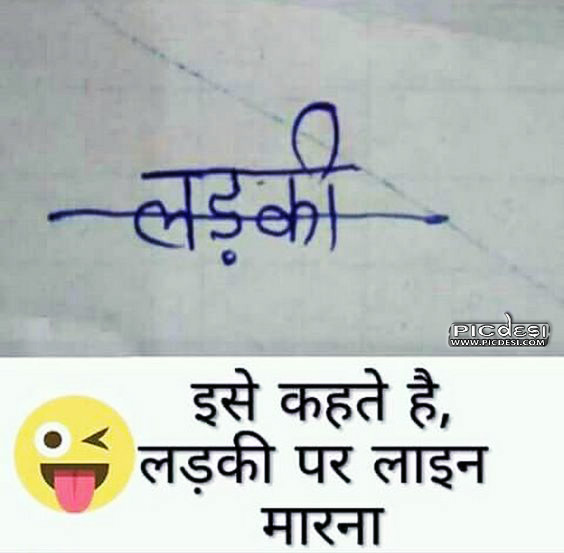 लड़की
PICdESI
WWW.PICDESI.COM
इसे कहते है,
लड़की पर लाइन
मारना